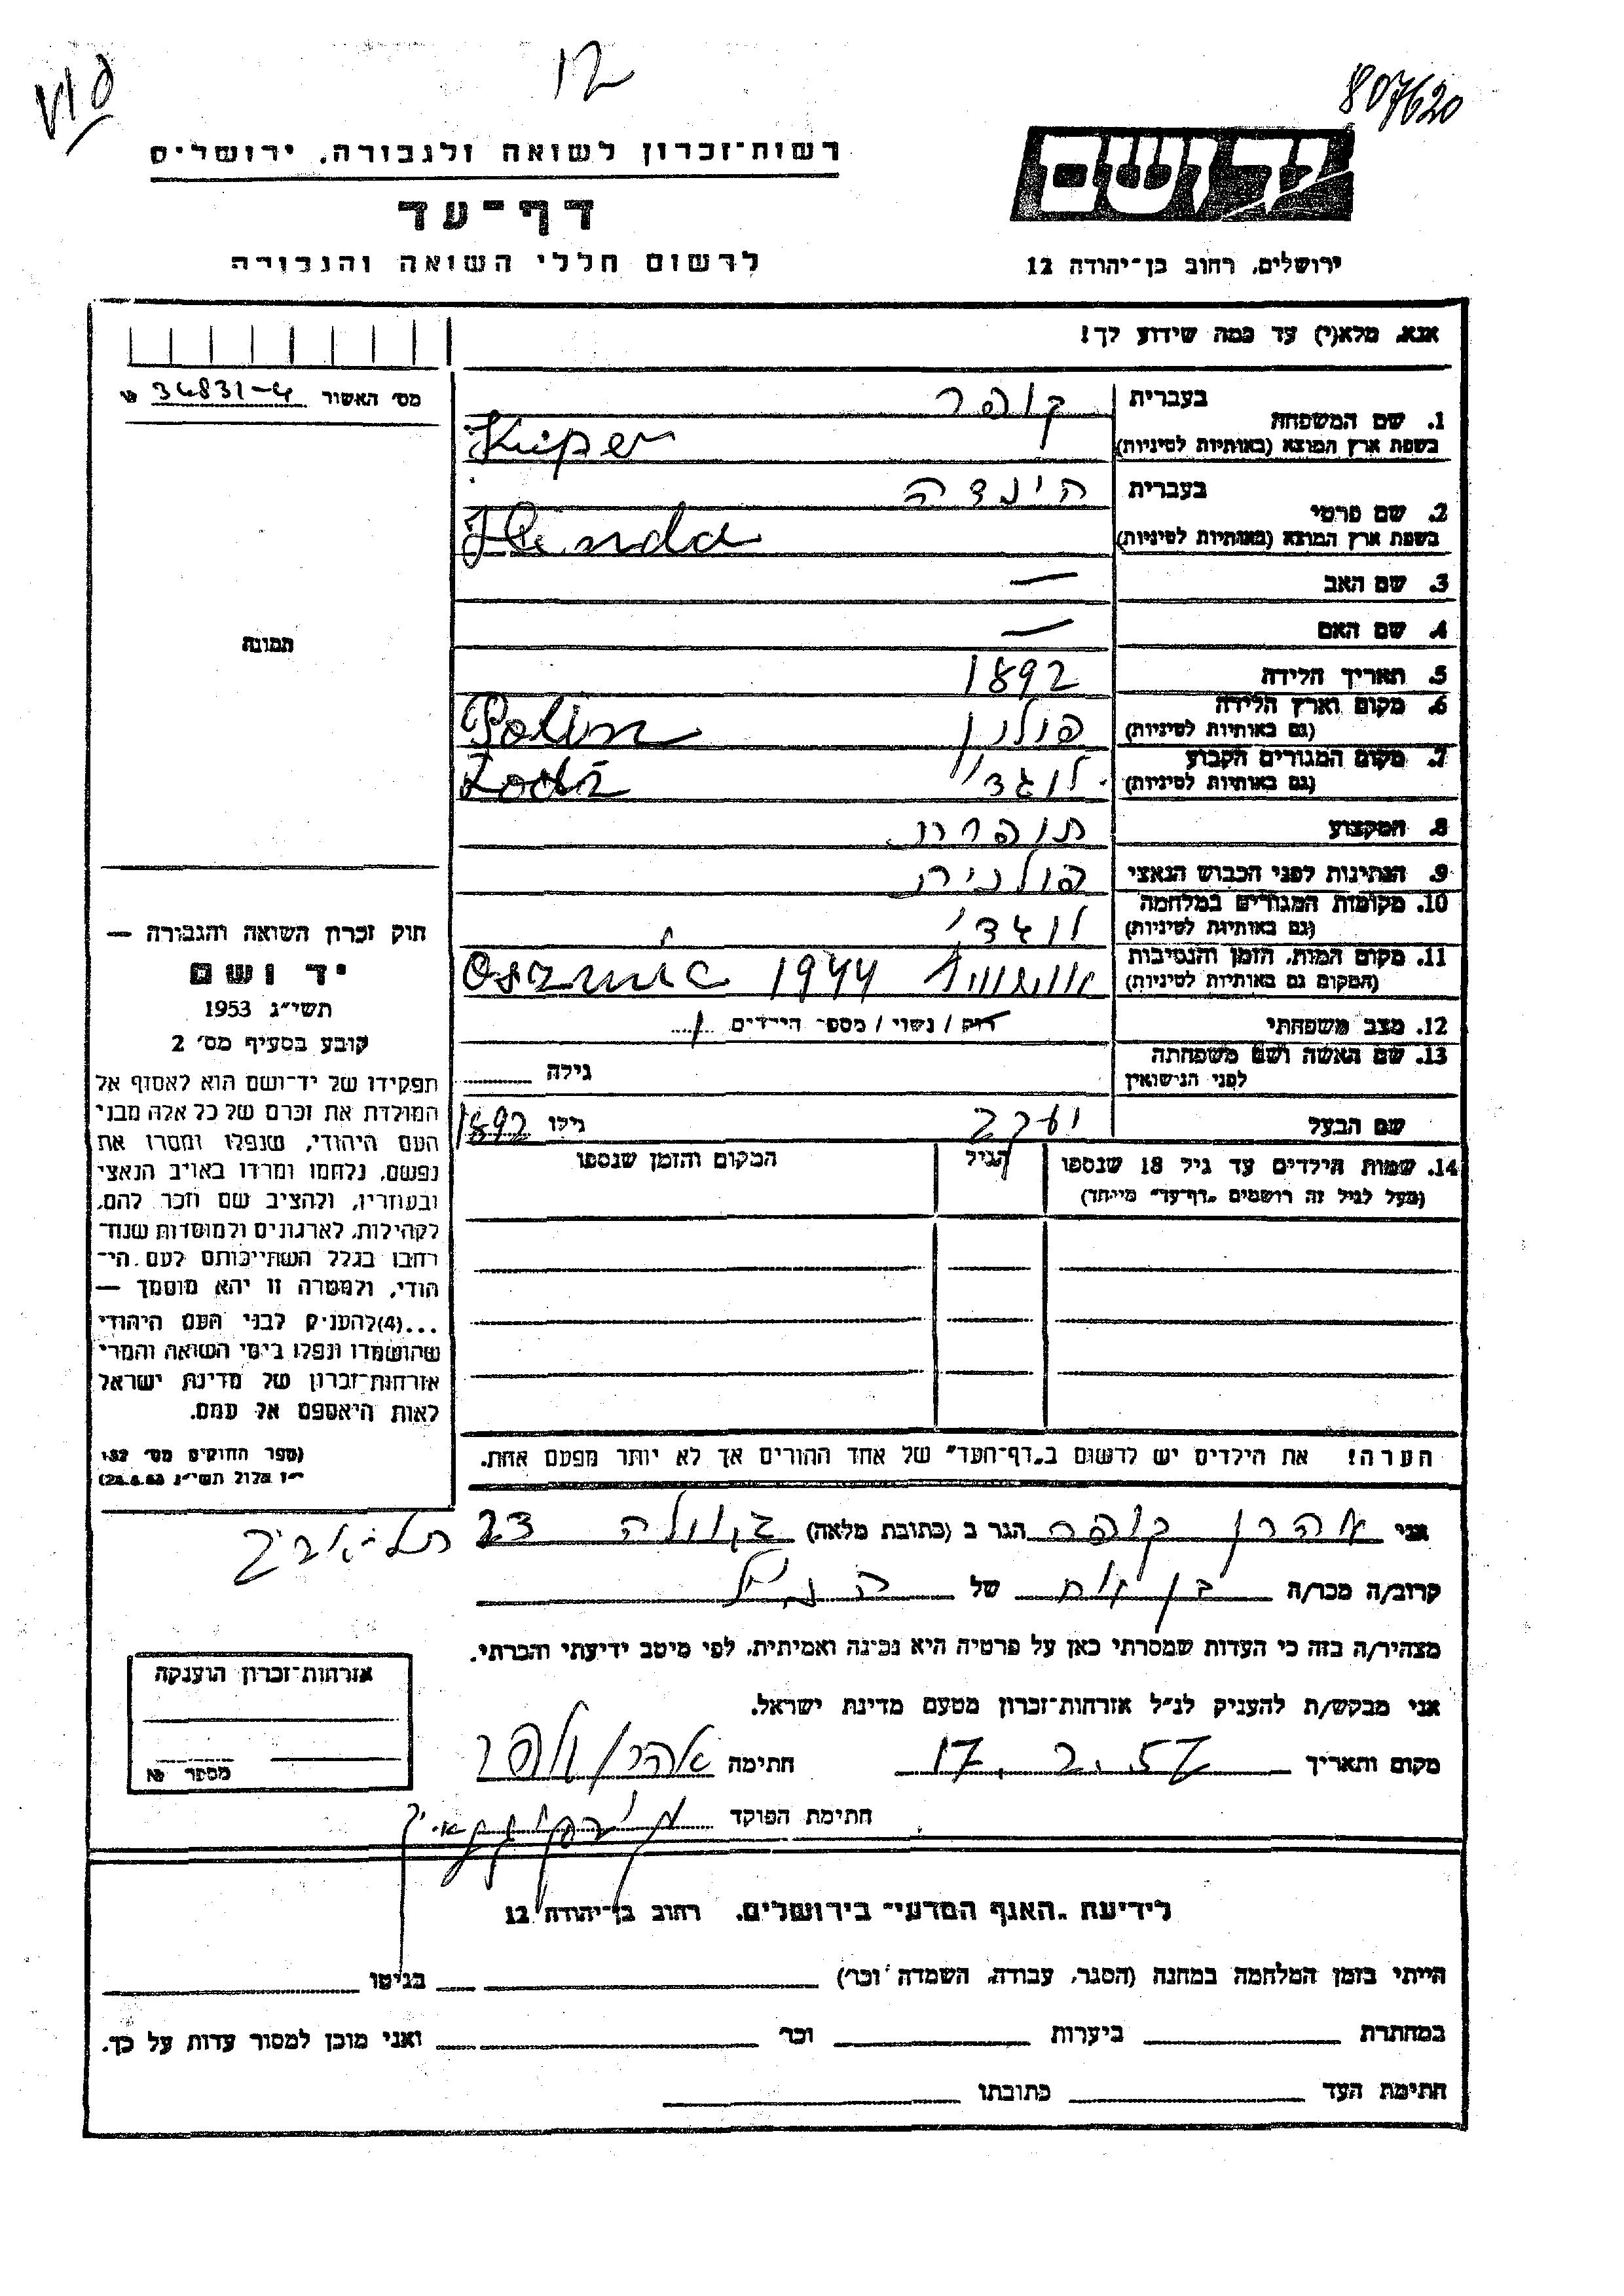 807620
12
יד ושם
ירושלים, רחוב בן־יהודה 12
רשות־זכרון לשואה ולגבורה, ירושלים
דף־עד
לרשום חללי השואה והגבורה
אנא, מלא(י) עד כמה שידוע לך!
מס׳ האשור 34831-4
1. שם המשפחה בעברית קופר
בשפת ארץ המוצא (באותיות לטיניות) Kuper
2. שם פרטי בעברית הינדה
בשפת ארץ המוצא (באותיות לטיניות) Hinda
3. שם האב —
4. שם האם —
5. תאריך הלידה 1892
6. מקום וארץ הלידה
(גם באותיות לטיניות) פולין Polin
7. מקום המגורים הקבוע
(גם באותיות לטיניות) לודג׳ Lodz
8. המקצוע תופרת
9. הנתינות לפני הכבוש הנאצי פולנית
10. מקומות המגורים במלחמה
(גם באותיות לטיניות) לודג׳
11. מקום המות, הזמן והנסיבות
(המקום גם באותיות לטיניות) 1944
12. מצב משפחתי רוק / נשוי / מספר הילדים 1
13. שם האשה ושם משפחתה
לפני הנישואין גילה
שם הבעל יעקב גילו 1892
14. שמות הילדים עד גיל 18 שנספו הגיל המקום והזמן שנספו
(מעל לגיל זה רושמים „דף־עד״ מיוחד)
הערה! את הילדים יש לרשום ב„דף־העד״ של אחד ההורים אך לא יותר מפעם אחת.
תמונה
חוק זכרון השואה והגבורה —
יד ושם
תשי״ג 1953
קובע בסעיף מס׳ 2
תפקידו של יד־ושם הוא לאסוף אל
המולדת את זכרם של כל אלה מבני
העם היהודי, שנפלו ומסרו את
נפשם, נלחמו ומרדו באויב הנאצי
ובעוזריו, ולהציב שם וזכר להם,
לקהילות, לארגונים ולמוסדות שנח־
רבו בגלל השתייכותם לעם הי־
הודי, ולמטרה זו יהא מוסמך —
...(4)להעניק לבני העם היהודי
שהושמדו ונפלו בימי השואה והמרי
אזרחות־זכרון של מדינת ישראל
לאות היאספם אל עמם.
(ספר החוקים מס׳ 132
י״ז אלול תשי״ג 28.8.53)
אני אהרן קופר הגר ב (כתובת מלאה) 23 תל-אביב
קרוב/ה מכר/ה של הנ״ל
מצהיר/ה בזה כי העדות שמסרתי כאן על פרטיה היא נכונה ואמיתית, לפי מיטב ידיעתי והכרתי.
אני מבקש/ת להעניק לנ״ל אזרחות־זכרון מטעם מדינת ישראל.
מקום ותאריך 17.2.57 חתימה אהרן קופר
חתימת הפוקד
אזרחות־זכרון הוענקה
מספר №
לידיעת „האגף המדעי״ בירושלים, רחוב בן־יהודה 12
הייתי בזמן המלחמה במחנה (הסגר, עבודה, השמדה וכר׳) בגיטו
במחתרת ביערות וכר׳ ואני מוכן למסור עדות על כך.
חתימת העד כתובתו